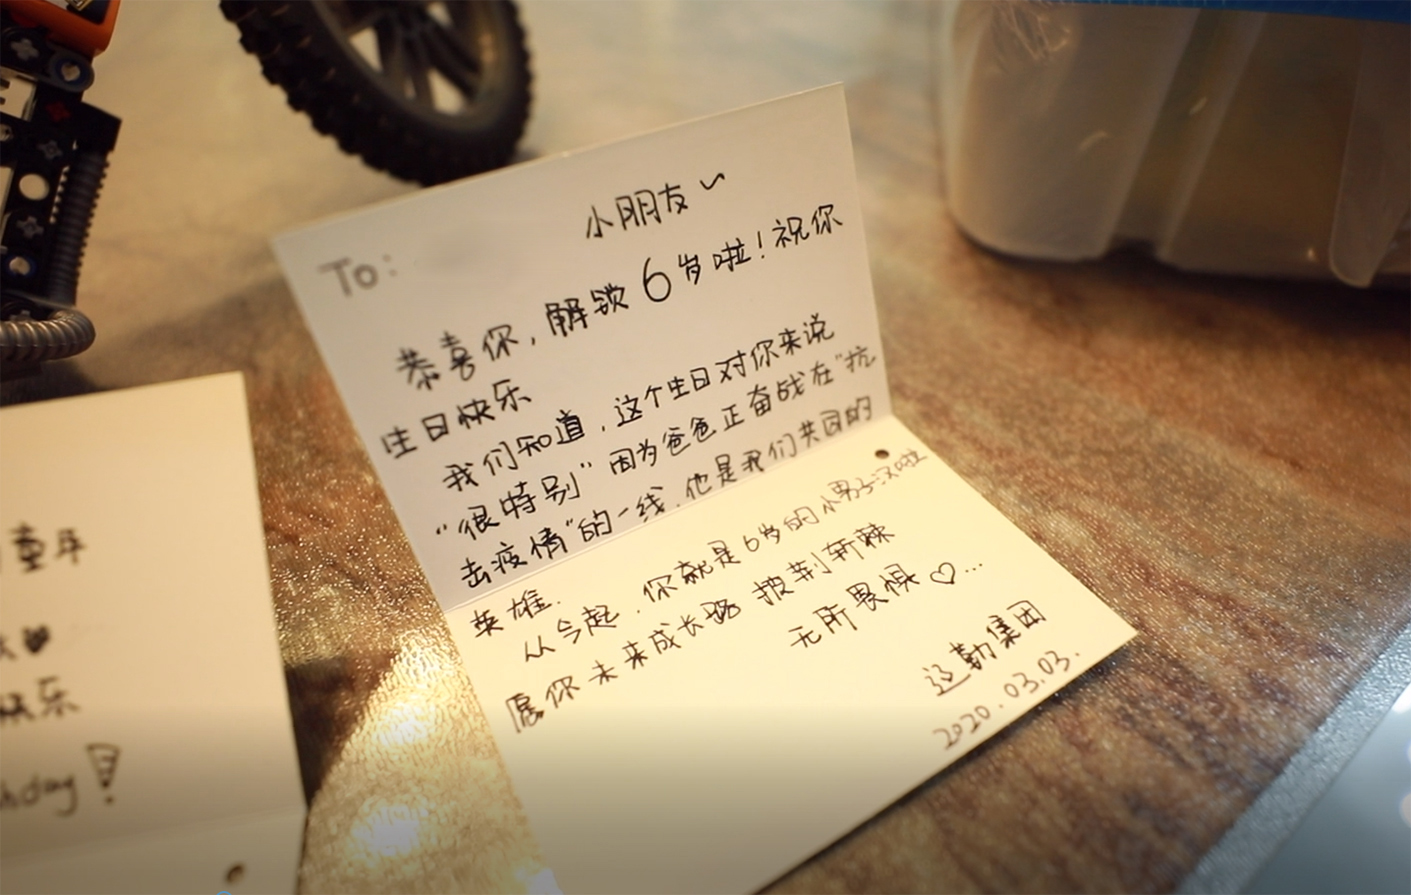 To: 小朋友~
恭喜你,解锁6岁啦!祝你
生日快乐
我们知道,这个生日对你来说
“很特别”因为爸爸正奋战在“抗
击疫情”的一线.他是我们共同的
英雄.
从今起.你就是6岁的小男子汉啦
愿你未来成长路 披荆斩棘
无所畏惧♡...
迈勒集团
2020.03.03.
童年
快乐
hday!